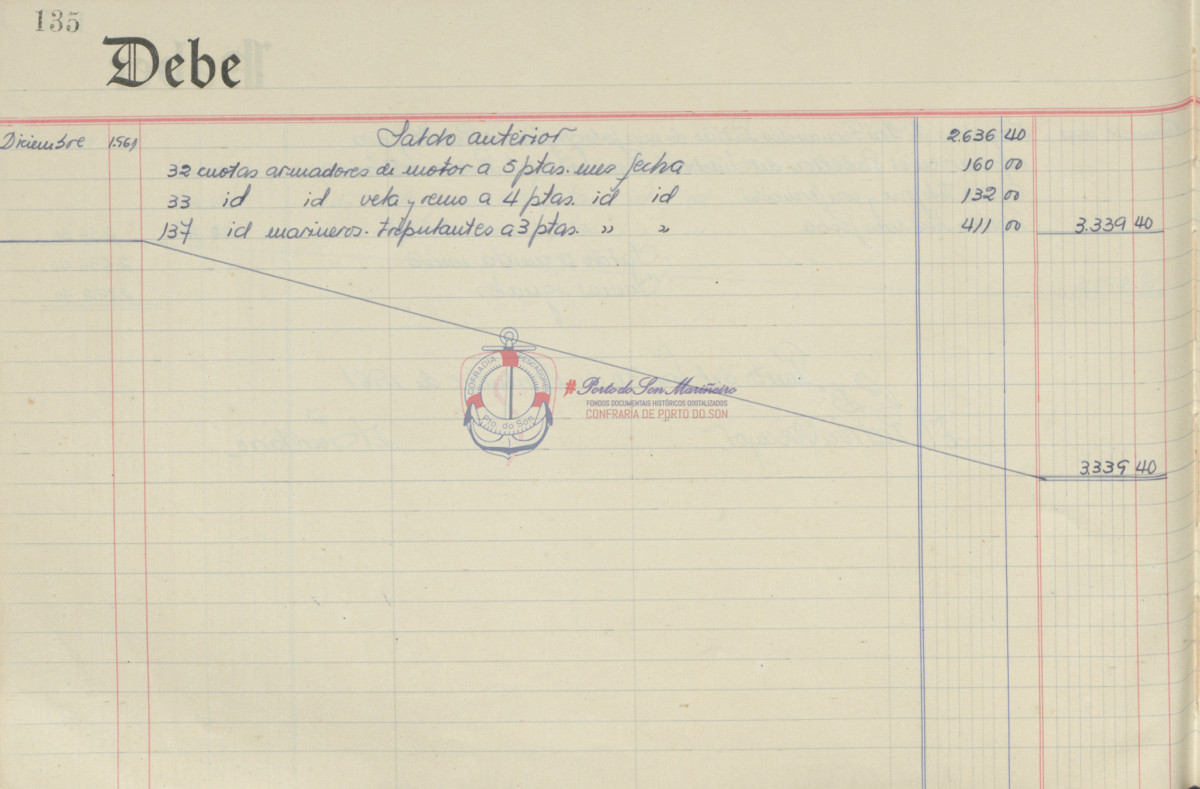 135
Debe
Diciembre 1.961 Saldo anterior 2.636 40
32 cuotas armadores de motor a 5 ptas. mes fecha 160 00
33 id id vela y remo a 4 ptas. id id 132 00
137 id marineros. tripulantes a 3 ptas. " " 411 00 3.339 40
COFRADIA PESCADORES
Pto. do Son
#Porto do Son Mariñeiro
FONDOS DOCUMENTAIS HISTÓRICOS DIXITALIZADOS
CONFRARIA DE PORTO DO SON
3.339 40